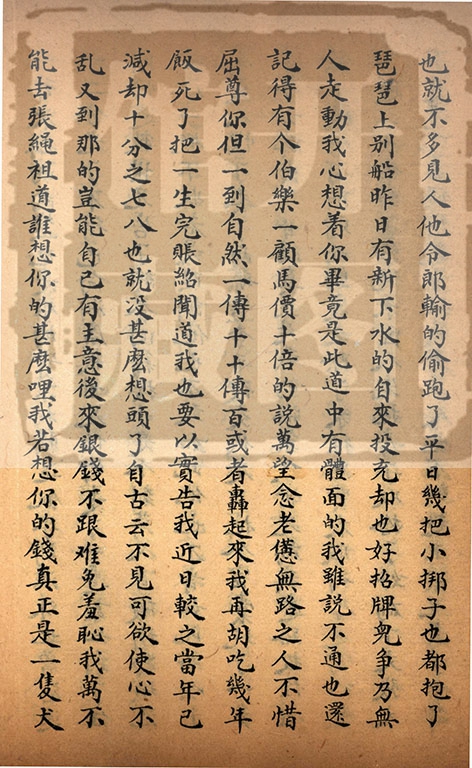 也就不多見人他令郎輸的偷跑了平日幾把小挷子也都抱了
琵琶上别船昨日有新下水的自來投充却也好招牌兒爭乃無
人走動我心想着你畢竟是此道中有體面的我雖説不通也還
記得有个伯樂一顧馬價十倍的說萬望念老僊無路之人不惜
屈尊你但一到自然一傳十十傳百或者轟起來我再胡吃幾年
飯死了把一生完賬紹聞道我也要以實告我近日較之當年已
減却十分之七八也就没甚麽想頭了自古云不見可欲使心不
乱又到那的豈能自己有主意後來銀錢不跟难免羞恥我萬不
能去張繩祖道誰想你的甚麽哩我若想你的錢真正是一隻犬